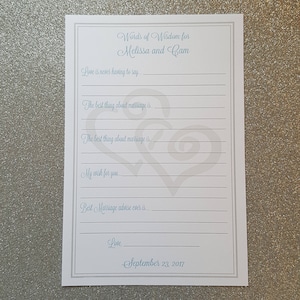 Words of Wisdom for
Melissa and Cam
Love is never having to say
The best thing about marriage is
My wish for you
Best Marriage advice ever is
Love
September 23, 2017